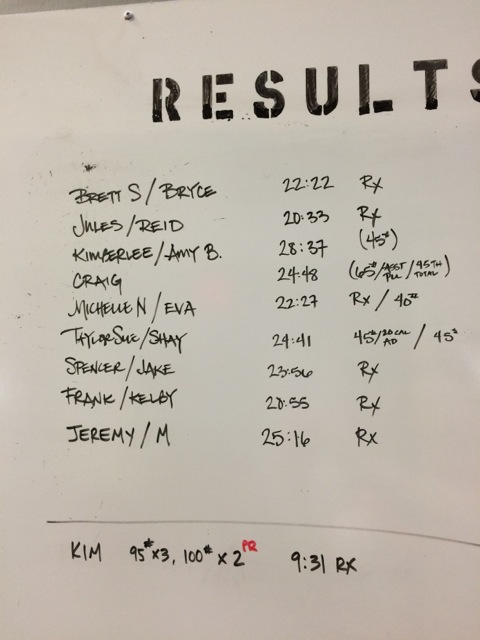 RESULTS
BRETT S / BRYCE 22:22 Rx
JULES / REID 20:33 Rx
KIMBERLEE / AMY B. 28:37 (45#)
CRAIG 24:48 (65#/ASST PLL / 45TH TOTAL)
MICHELLE N / EVA 22:27 Rx / 40#
TAYLOR SUE / SHAY 24:41 45#/20 CAL AD / 45#
SPENCER / JAKE 23:56 Rx
FRANK / KELBY 20:55 Rx
JEREMY / M 25:16 Rx
KIM 95# x3, 100# x 2 PR 9:31 RX